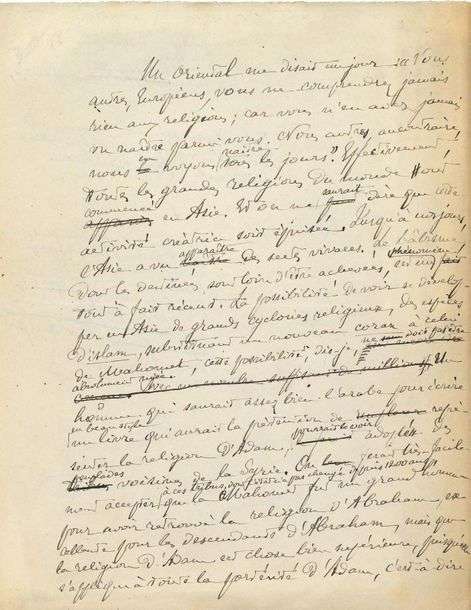 Un Oriental me disait un jour : « Vous
autres, Européens, vous ne comprendrez jamais
rien aux religions ; car vous n'en avez jamais
vu naître parmi vous. Nous autres, au contraire,
nous en voyons naître tous les jours." Effectivement,
toutes les grandes religions du monde sont
commencé en Asie. Et on ne saurait dire que cette
activité créatrice soit épuisée. Jusqu'à nos jours,
l'Asie a vu apparaître des sectes vivaces. Le bâbisme,
dont les destinées sont loin d'être achevées, est un phénomène
tout à fait récent. La possibilité de voir se dévelop-
per en Asie de grands cyclones religieux, des espèces
d'islam, substituant un nouveau coran à celui
de Mahomet, cette possibilité, dis-je, ne doit pas être
absolument niée. Un
homme qui saurait assez bien l'arabe pour écrire
en beau style
un livre qui aurait la prétention de repré-
senter la religion d'Adam, pourrait le voir adopté des
peuplades voisines de la Syrie. On ferait bien facile-
ment accepter à ces tribus, dont l'idée n'a pas changé depuis 1800 ans, que Mahomet fut un grand homme
pour avoir retrouvé la religion d'Abraham, ex-
cellente pour les descendants d'Abraham, mais que
la religion d'Adam est chose bien supérieure, puisqu'elle
s'applique à toute la postérité d'Adam, c'est à dire